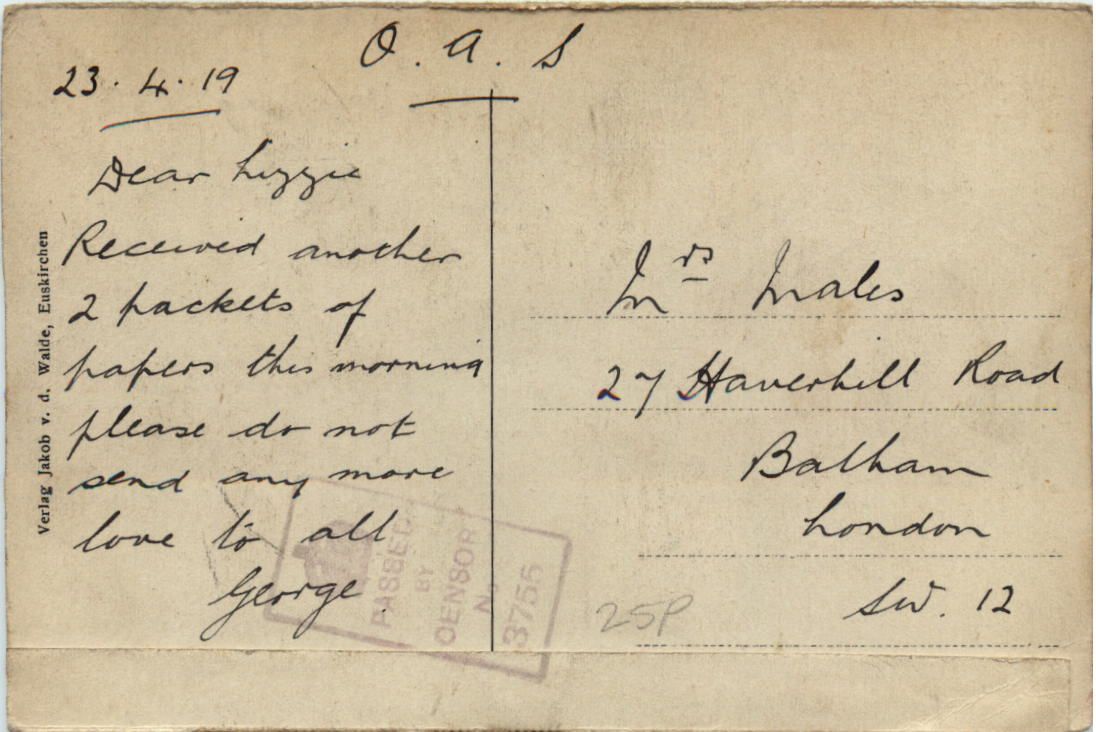 O. A. S
23. 4. 19
Dear Lizzie
Received another
2 packets of
papers this morning
please do not
send any more
love to all
George.
Mrs Males
27 Haverhill Road
Balham
London
SW. 12
25P
Verlag Jakob v. d. Walde, Euskirchen
PASSED
BY
CENSOR
No
3755